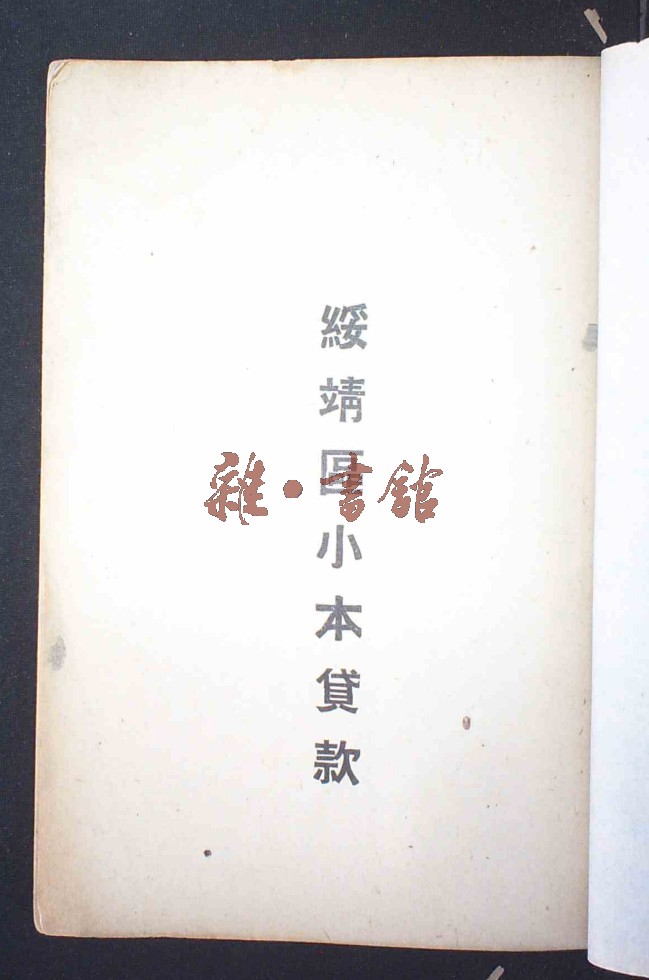 綏靖區小本貸款
雜·書館